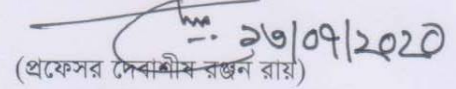 ২৬/০৭/২০২০
(প্রফেসর দেবাশীষ রঞ্জন রায়)